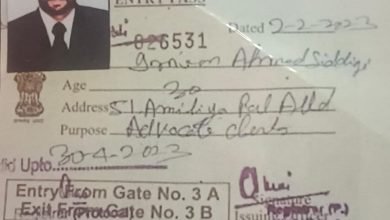 ENTRY PASS
Dated 2-2-2023
026531
Ahmad Siddiqi
Age 30
Address 51 Amitiya Pal Alld
Purpose Advocate clerk
Upto 30-4-2023
Entry From Gate No. 3 A
Exit From Gate No. 3 B
Signature
Issuing